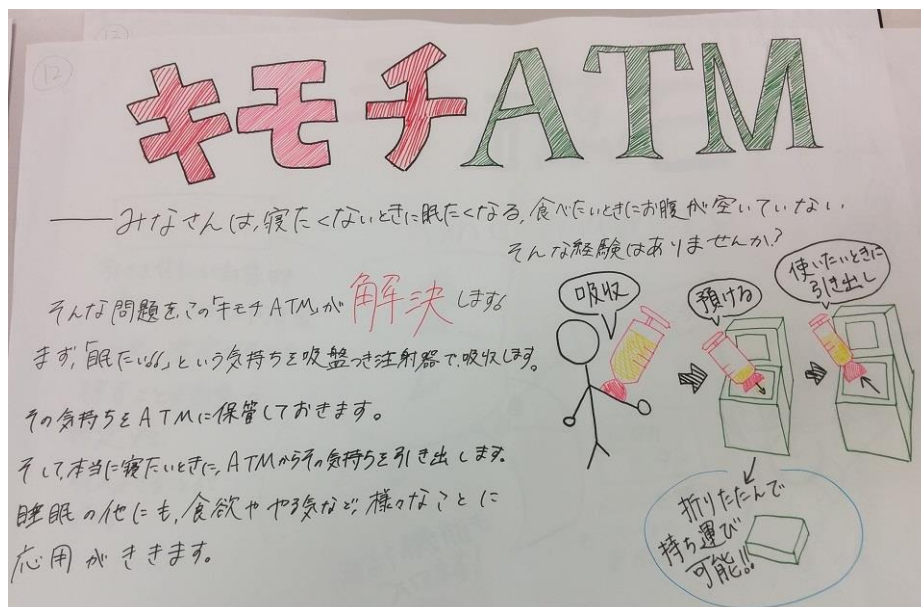 ⑫
キモチATM
―みなさんは、寝たくないときに眠たくなる、食べたいときにお腹が空いていない、
そんな経験はありませんか？
そんな問題をこの「キモチATM」が解決します。
まず、「眠たい。。」という気持ちを吸盤つき注射器で、吸収します。
その気持ちをATMに保管しておきます。
そして、本当に寝たいときに、ATMからその気持ちを引き出します。
睡眠の他にも、食欲ややる気など、様々なことに
応用がききます。
吸収
預ける
使いたいときに
引き出し
折りたたんで
持ち運び
可能!!